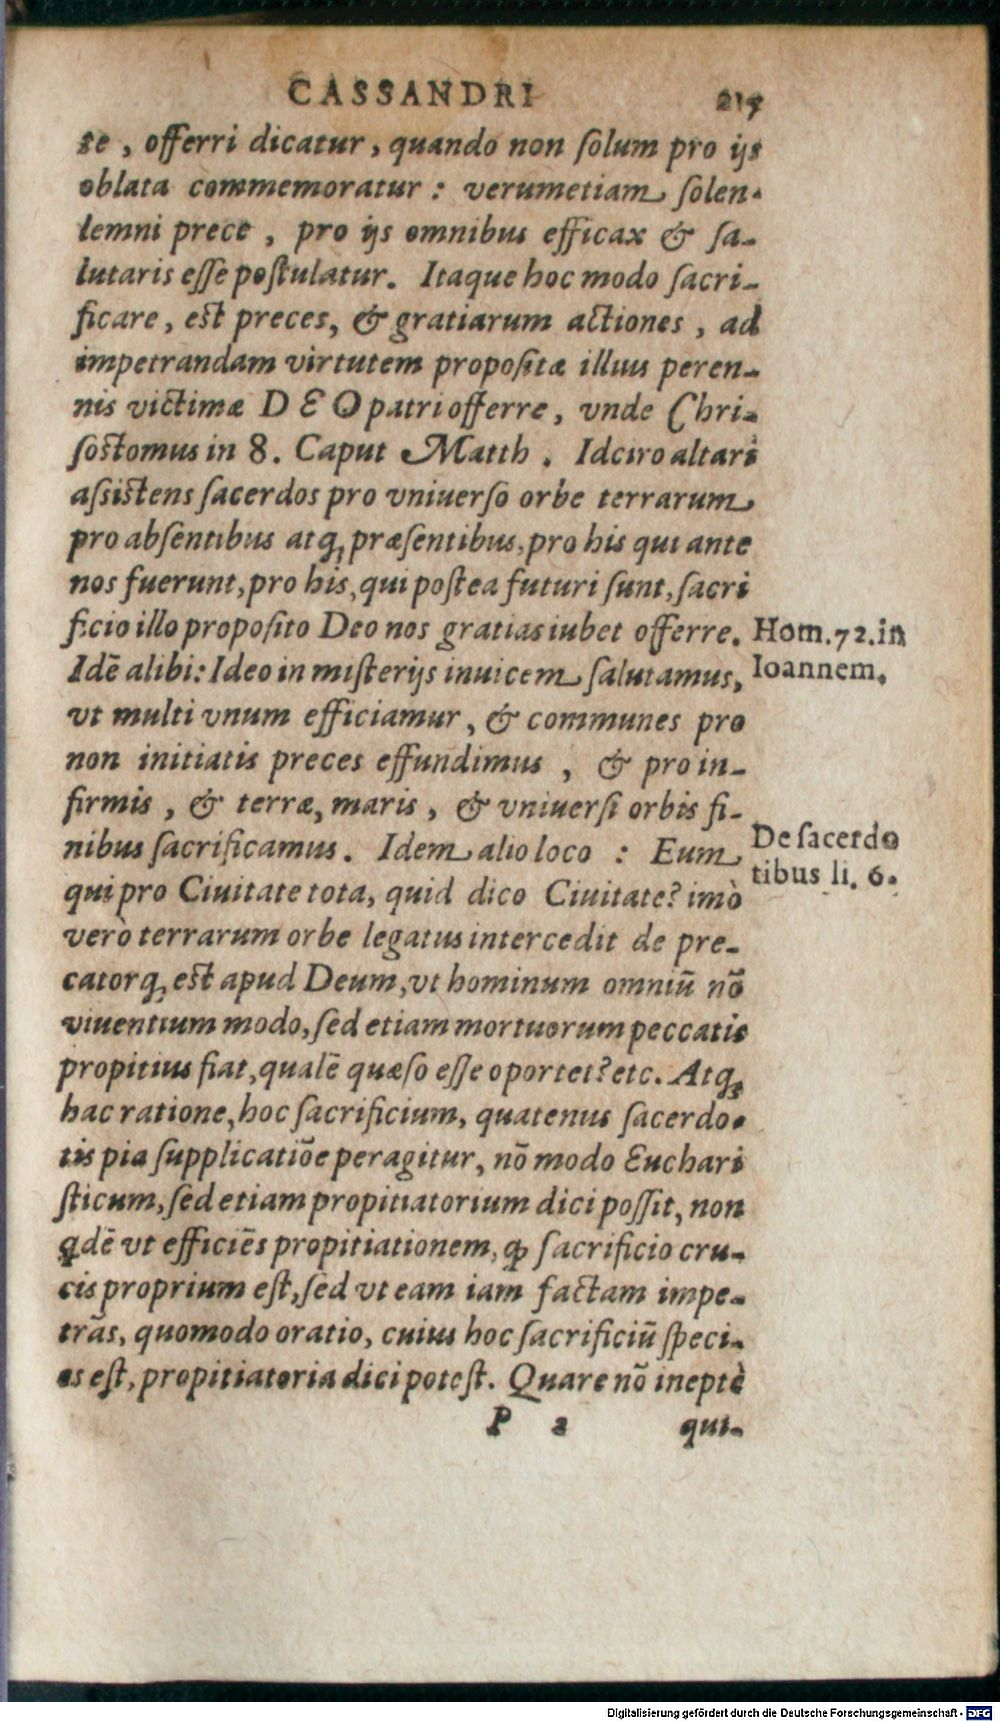 CASSANDRI 217
te, offerri dicatur, quando non ſolum pro ijs
oblata commemoratur: verumetiam ſolen-
lemni prece, pro ijs omnibus efficax & ſa-
lutaris eſſe poſtulatur. Itaque hoc modo ſacri-
ficare, eſt preces, & gratiarum actiones, ad
impetrandam virtutem propoſitæ illius peren-
nis victimæ DEO patri offerre, vnde Chri-
ſoſtomus in 8. Caput Matth. Idciro altari
aſſiſtens ſacerdos pro vniuerſo orbe terrarum
pro abſentibus atq; præſentibus, pro his qui ante
nos fuerunt, pro his, qui poſtea futuri ſunt, ſacri
ficio illo propoſito Deo nos gratias iubet offerre.
Hom. 72. in
Ioannem.
Idē alibi: Ideo in miſterijs inuicem ſalutamus,
vt multi vnum efficiamur, & communes pro
non initiatis preces effundimus, & pro in-
firmis, & terræ, maris, & vniuerſi orbis fi-
nibus ſacrificamus. Idem alio loco: Eum
De ſacerdo
tibus li. 6.
qui pro Ciuitate tota, quid dico Ciuitate? imò
verò terrarum orbe legatus intercedit de pre-
catorq; eſt apud Deum, vt hominum omniū nō
viuentium modo, ſed etiam mortuorum peccatis
propitius fiat, qualē quæſo eſſe oportet? etc. Atq;
hac ratione, hoc ſacrificium, quatenus ſacerdo-
tis pia ſupplicatiōe peragitur, nō modo Euchari
ſticum, ſed etiam propitiatorium dici poſſit, non
qdē vt efficiēs propitiationem, qꝫ ſacrificio cru-
cis proprium eſt, ſed vt eam iam factam impe-
trās, quomodo oratio, cuius hoc ſacrificiū ſpeci-
es eſt, propitiatoria dici poteſt. Quare nō ineptè
P 2 qui-
Digitalisierung gefördert durch die Deutsche Forschungsgemeinschaft - DFG